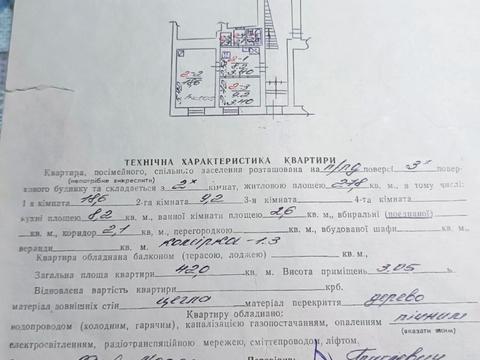 2-2
18,6
2-1
8,2
3.40
2-3
9.2
3.40
ТЕХНІЧНА ХАРАКТЕРИСТИКА КВАРТИРИ
Квартира, посімейного, спільного заселення розташована на п/пд поверсі 3х повер-
(непотрібне викреслити)
хового будинку та складається з 2х кімнат, житловою площею 27,8 кв. м., в тому числі:
1-а кімната 18,6 2-га кімната 9,2 3-я кімната 4-та кімната
кухні площею 8,2 кв. м., ванної кімнати площею 2,6 кв. м., вбиральні (поєднаної)
кв. м., коридор 2,1 кв. м., перегородкою кв. м., вбудованої шафи кв. м.,
веранди кв. м. комірка - 1.3
Квартира обладнана балконом (терасою, лоджею) кв. м.,
Загальна площа квартири 42,0 кв. м. Висота приміщень 3.05 м.
Відновлена вартість квартири крб.
матеріал зовнішніх стін цегла матеріал перекриття дерево
Квартиру обладнано: пічним
водопроводом (холодним, гарячим), каналізацією газопостачанням, опаленням
(вказати яким)
електроосвітленням, радіотрансляційною мережею, сміттєпроводом, ліфтом.